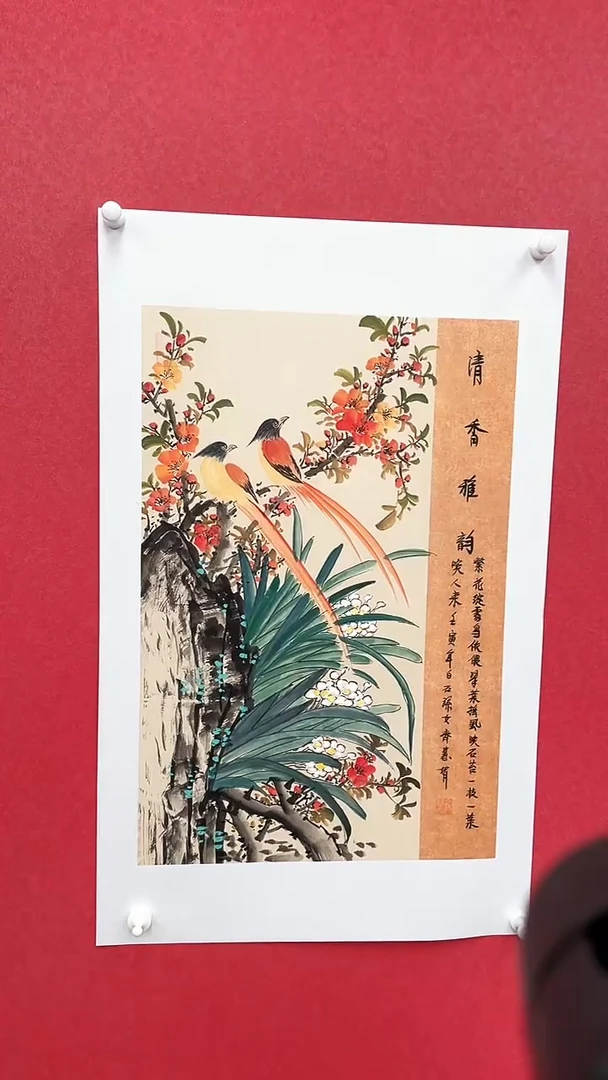 清香雅韵
繁花绽依偎翠叶风映石苔一枝一叶
笑人来壬寅年白石孙女齐